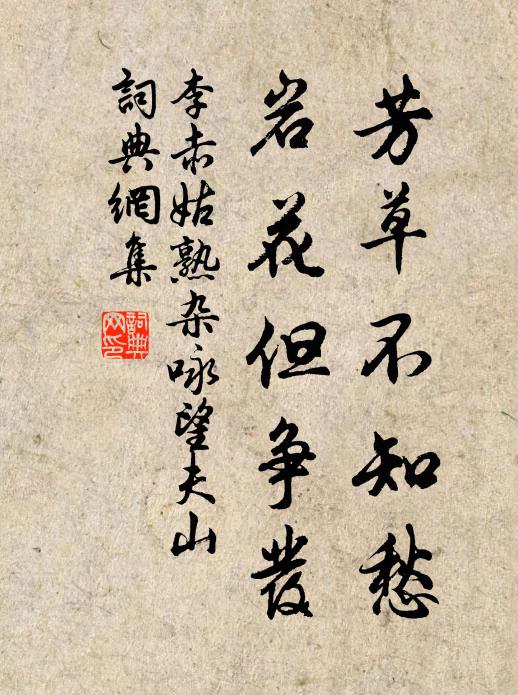 芳草不知愁
岩花但争發
李赤姑熟杂咏望夫山
詞典網集
詞典网印